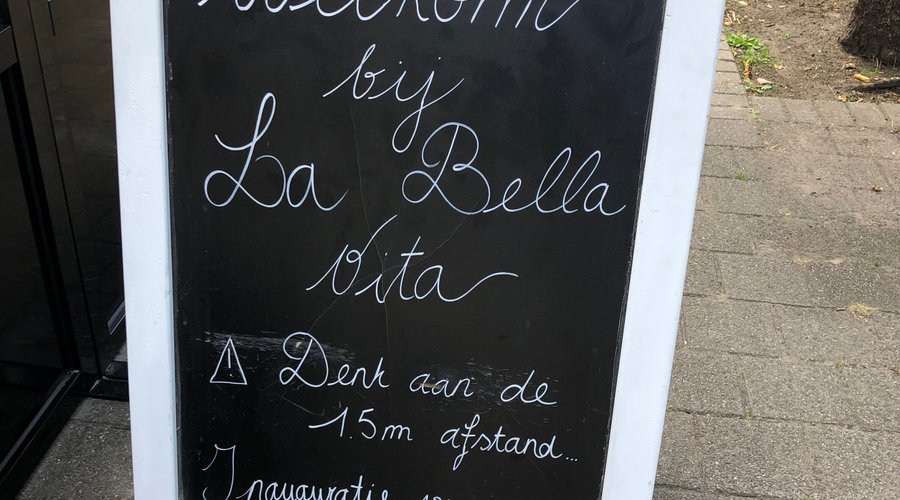 Welkom
bij
La Bella
Vita
⚠ Denk aan de
1.5m afstand...
Inauguratie